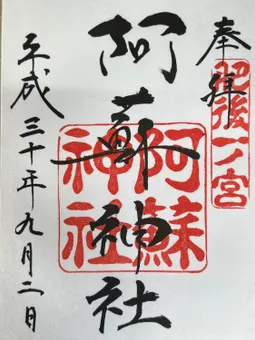 奉拝
肥後一ノ宮
阿蘇神社
阿蘇
神社
平成三十年九月二日